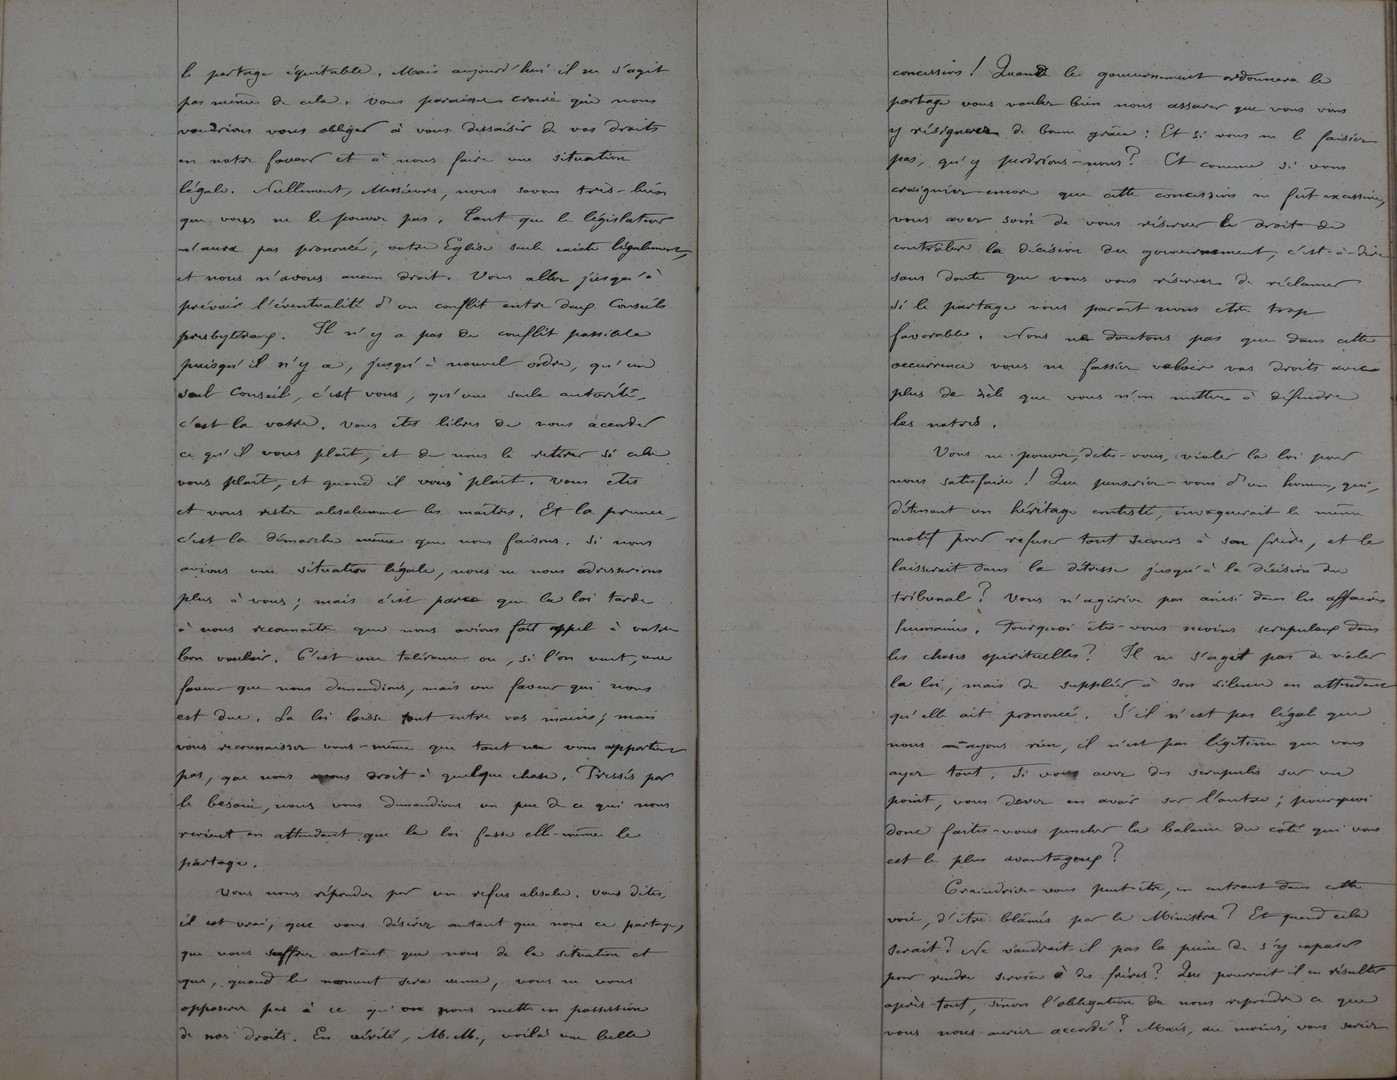 le partage équitable. Mais aujourd'hui il ne s'agit
pas même de cela. Vous paraissez croire que nous
voudrions vous obliger à vous dessaisir de vos droits
en notre faveur et à nous faire une situation
légale. Nullement, Messieurs, nous savons très-bien
que vous ne le pouvez pas. Tant que le législateur
n'aura pas prononcé, votre Eglise seule existe légalement,
et nous n'avons aucun droit. Vous allez jusqu'à
prévoir l'éventualité d'un conflit entre deux Conseils
presbytéraux. Il n'y a pas de conflit possible
puisqu'il n'y a, jusqu'à nouvel ordre, qu'un
seul Conseil, c'est vous, qu'une seule autorité,
c'est la votre. Vous êtes libres de nous accorder
ce qu'il vous plaît, et de nous le retirer si cela
vous plaît, et quand il vous plaît. Vous êtes
et vous restez absolument les maîtres. Et la preuve,
c'est la démarche même que nous faisons. Si nous
avions une situation légale, nous ne nous adresserions
plus à vous; mais c'est parce que la loi tarde
à nous reconnaître que nous avions fait appel à votre
bon vouloir. C'est une tolérance ou, si l'on veut, une
faveur que nous demandions, mais une faveur qui nous
est due. La loi laisse tout entre vos mains; mais
vous reconnaissez vous-même que tout ne vous appartient
pas, que nous avons droit à quelque chose. Pressés par
le besoin, nous vous demandions un peu de ce qui nous
revient en attendant que la loi fasse elle-même le
partage.
Vous nous répondez par un refus absolu. Vous dites,
il est vrai, que vous désirez autant que nous ce partage,
que vous souffrez autant que nous de la situation et
que, quand le moment sera venu, vous ne vous
opposerez pas à ce qu'on nous mette en possession
de nos droits. En vérité, M.M., voilà une belle
concession! Quand le gouvernement ordonnera le
partage vous voulez bien nous assurer que vous vous
y résignerez de bonne grâce: Et si vous ne le faisiez
pas, qu'y perdrions-nous? Et comme si vous
craigniez encore que cette concession ne fût excessive,
vous avez soin de vous réserver le droit de
contrôler la décision du gouvernement, c'est-à-dire
sans doute que vous vous réservez de réclamer
si le partage vous paraît nous être trop
favorable. Nous ne doutons pas que dans cette
occurrence vous ne fassiez valoir vos droits avec
plus de zèle que vous n'en mettez à défendre
les notres.
Vous ne pouvez, dites-vous, violer la loi pour
nous satisfaire! Que penseriez-vous d'un homme, qui,
détenant un héritage contesté, invoquerait le même
motif pour refuser tout secours à son frère, et le
laisserait dans la détresse jusqu'à la décision du
tribunal? Vous n'agiriez pas ainsi dans les affaires
humaines. Pourquoi êtes-vous moins scrupuleux dans
les choses spirituelles? Il ne s'agit pas de violer
la loi, mais de suppléer à son silence en attendant
qu'elle ait prononcé. S'il n'est pas légal que
nous ayons rien, il n'est pas légitime que vous
ayez tout. Si vous avez des scrupules sur un
point, vous devez en avoir sur l'autre; pourquoi
donc faites-vous pencher la balance du côté qui vous
est le plus avantageux?
Craindriez-vous peut-être, en entrant dans cette
voie, d'être blâmés par le Ministre? Et quand cela
serait? Ne vaudrait il pas la peine de s'y exposer
pour rendre service à des frères? Que pourrait il en résulter
après tout, sinon l'obligation de nous reprendre ce que
vous nous auriez accordé? Mais, au moins, vous seriez